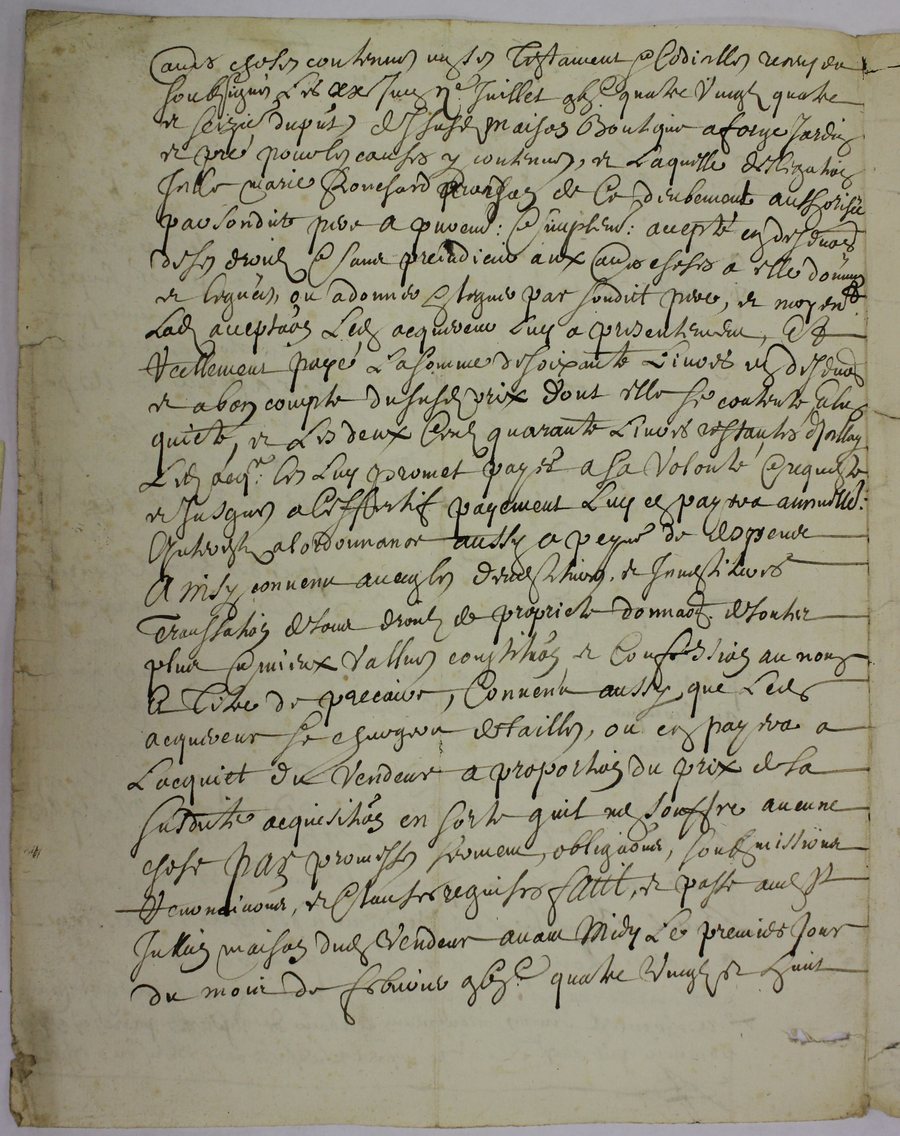 autres choses contenues en ses Testament & Codicilles receus de
soubsigné Les xx Juin & Juillet gbic quatre vingt quatre
et seizie du put, de susd maison Boutique a forge Jardin
et pré pour les causes y contenues, et Laquelle
Jelle marie Blanchard de Ce deubement authorisée
par sondit pere a purem: & simplem: accepté en
de ses droits & sans preiudice aux autres choses a elle données
et leguées, ou a donner & leguer par sondit pere, et moyent
Lad acceptaon Led acquereur Luy a presentement, et
reellement payé La somme de soixante Livres en
et a bon compte du susd prix dont elle se contente, &
quicte, et Les deux Cent quarante Livres restantes
Led acqr les Luy promet payer a sa Volonté & requeste
et Jusques a L'effectif payement Luy en payera annuellet:
Interest a l'ordonnance aussy a peyne de despens
Ainsy convenu avec les devestitures, et Investitures
Translation de tous droits de proprieté donnaon de toutes
plus & mieux Vallues constituon et Confession au nom
& Titre de precaire, Convenu aussy que Led
acquereur se chargera de tailles, ou en payera a
L'acquict du Vendeur a proportion du prix de la
susdite acquisition en sorte quil ne souffre aucune
chose par promesses serment, obligaons, soubmissions
Renonciaons, et Clauses requises fait, et passé aud St
Jullien maison dud Vendeur avant Midy Le premier Jour
du mois de febvrier gbic quatre Vingt et huit